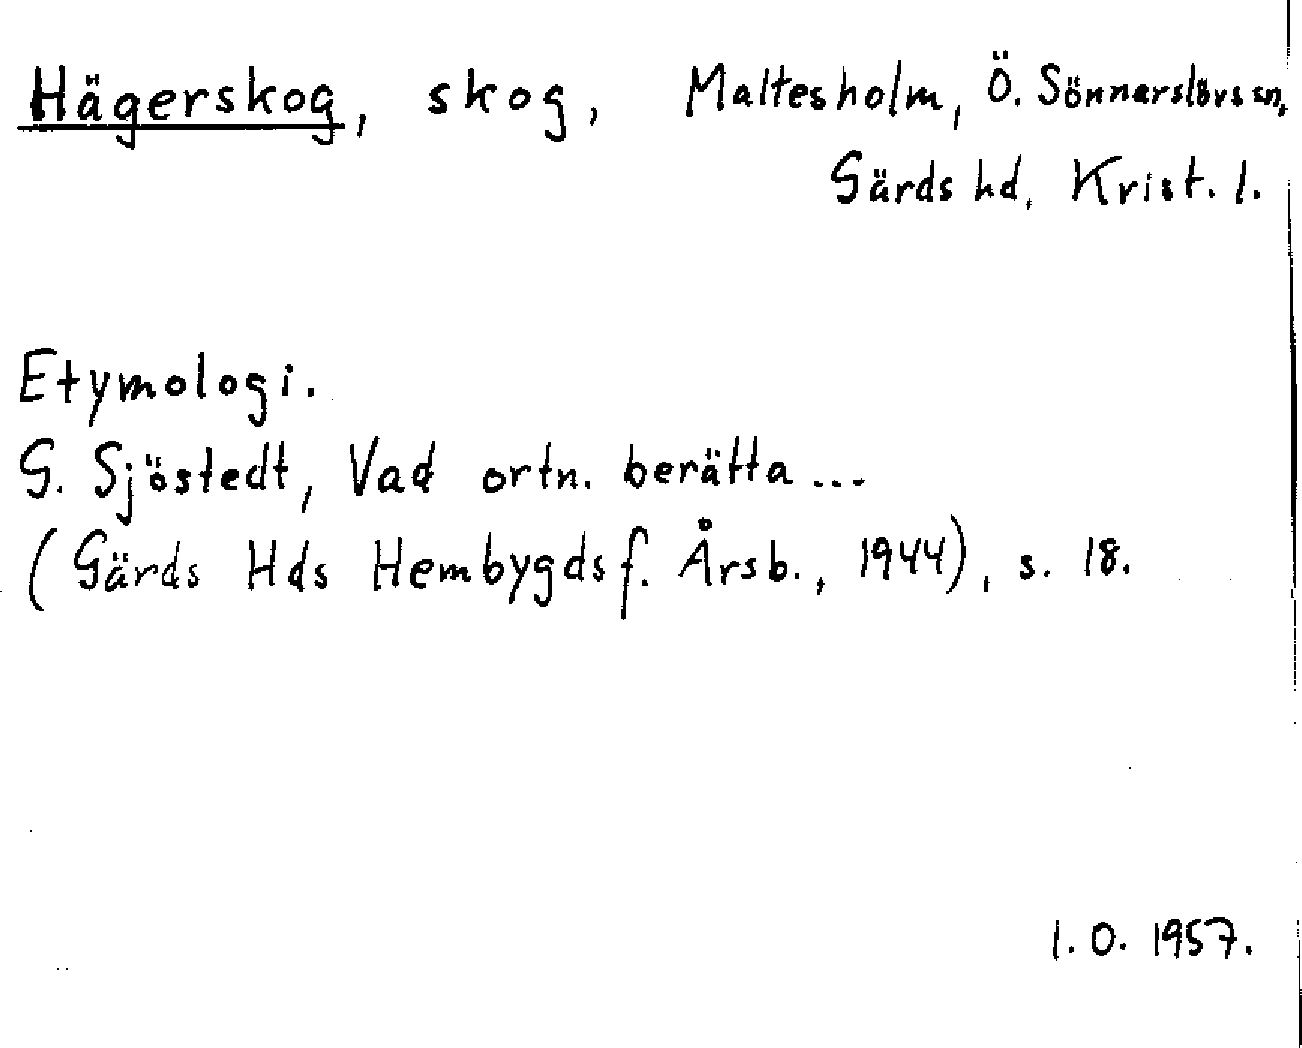 Hägerskog, skog, Maltesholm, Ö. Sönnarslövs sn,
Gärds hd, Krist. l.
Etymologi.
G. Sjöstedt, Vad ortn. berätta...
(Gärds Hds Hembygdsf. Årsb., 1944), s. 18.
I. O. 1957.